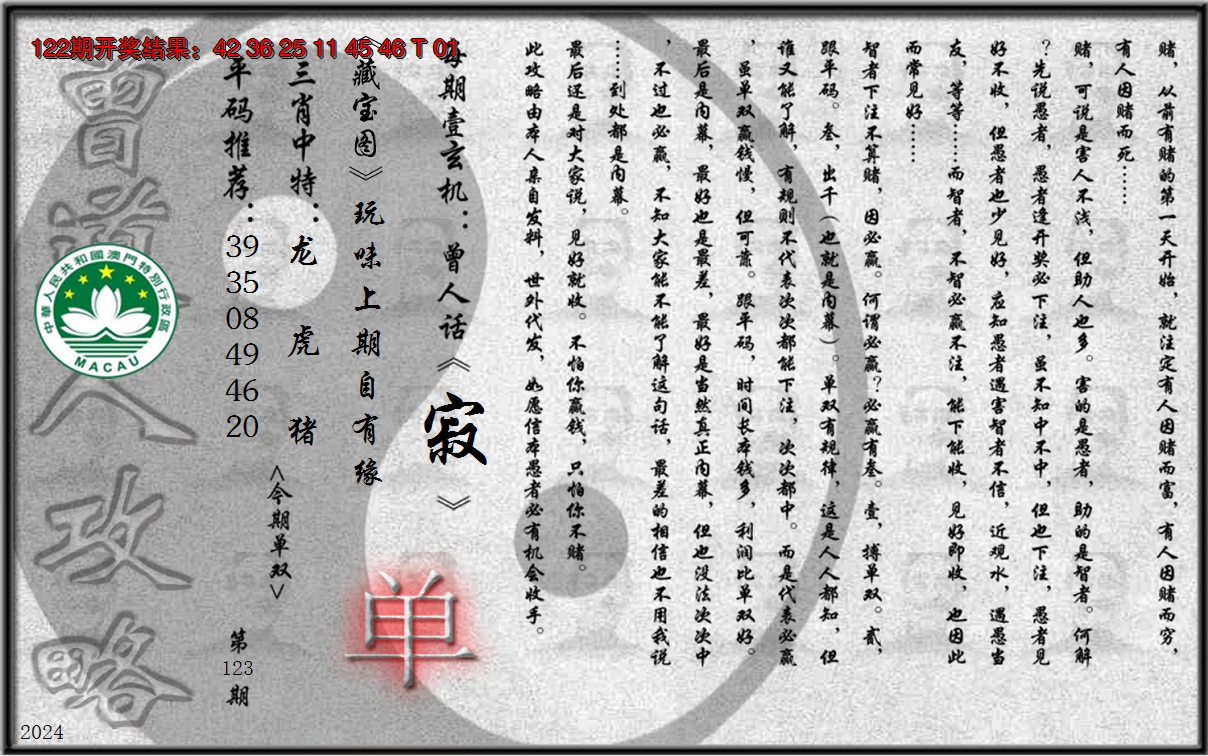 122期开奖结果：42 36 25 11 45 46 T 01
赌，从前有赌的第一天开始，就注定有人因赌而富，有人因赌而穷，
有人因赌而死……
赌，可说是害人不浅，但助人也多。害的是愚者，助的是智者。何解
？先说愚者，愚者逢开奖必下注，虽不知中不中，但也下注，愚者见
好不收，但愚者也少见好，应知愚者遇害智者不信，近观水，遇愚当
友，等等……而智者，不智必赢不注，能下能收，见好即收，也因此
而常见好……
智者下注不算赌，因必赢。何谓必赢？必赢有叁。壹，搏单双。贰，
跟平码。叁，出千（也就是内幕）。单双有规律，这是人人都知，但
谁又能了解，有规则不代表次次都能下注，次次都中。而是代表必赢
，虽单双赢钱慢，但可靠。跟平码，时间长本钱多，利润比单双好。
最后是内幕，最好也是最差，最好是当然真正内幕，但也没法次次中
，不过也必赢，不知大家能不能了解这句话，最差的相信也不用我说
……到处都是内幕。
最后还是对大家说，见好就收。不怕你赢钱，只怕你不赌。
此攻略由本人亲自发料，世外代发，如愿信本愚者必有机会收手。
每期壹玄机：曾人话《寂》
《藏宝图》玩味上期自有缘
单
三肖中特：龙 虎 猪
<今期单双>
平码推荐：39 35 08 49 46 20
第123期
曾道人攻略
中華人民共和國澳門特別行政區
MACAU
2024